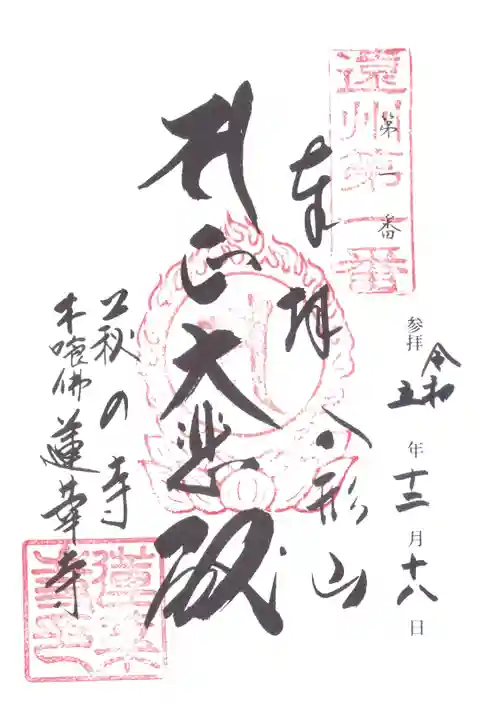 遠州第一番
第一番
参拝 令和五年十二月十八日
奉拝 八形山
大悲殿
萩の寺
木喰佛 蓮華寺
蓮華寺印